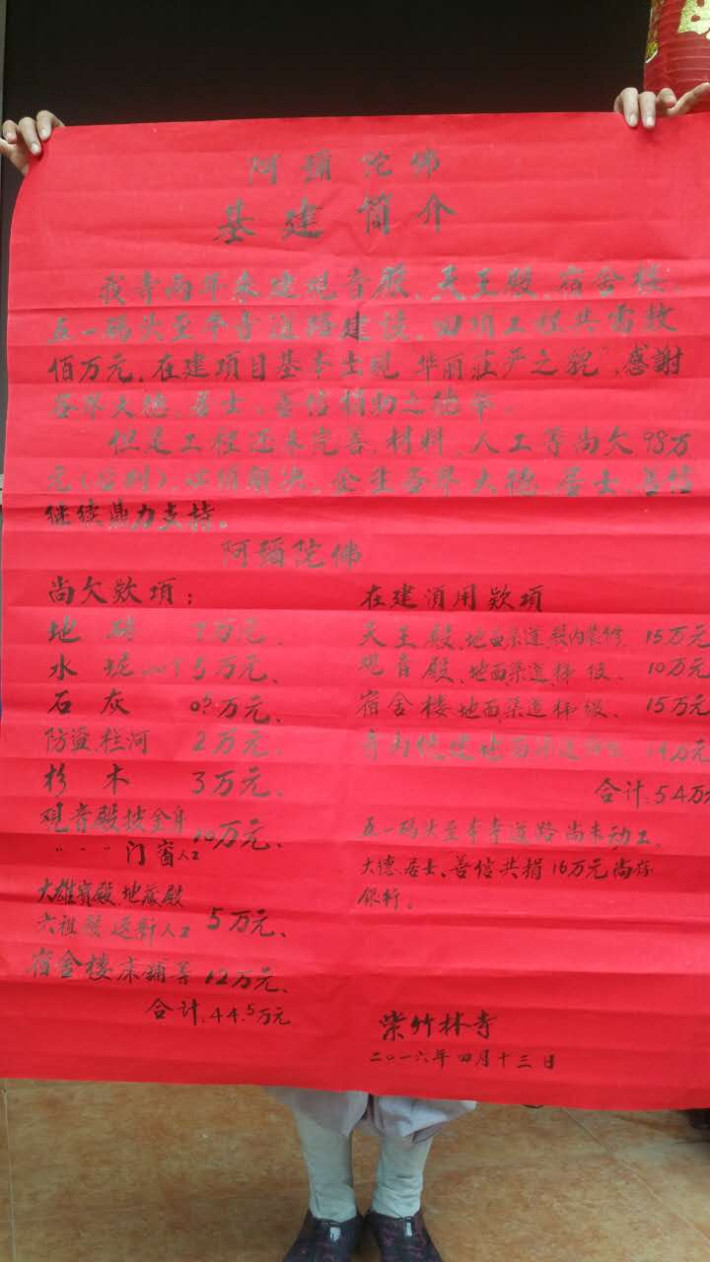 阿彌陀佛
基建简介
我寺两年来建观音殿、天王殿、宿舍楼、
五一码头至本寺道路建设,四项工程共需数
佰万元,在建项目基本出现“华丽莊严之貌”,感謝
各界大德、居士、善信捐助之德举。
但是工程还未完善,材料、人工等尚欠98万
元(后列),
各界大德、居士、善信
继续鼎力支持。
阿彌陀佛
尚欠欵項:
地 砖 7万元、
水 坭 5万元、
石 灰 0.5万元、
防盗栏河 2万元、
杉 木 3万元、
观音殿披金身
〃〃〃门窗人工 10万元、
大雄寳殿地藏殿
六祖殿返新人工 5万元、
宿舍楼床鋪等 12万元、
合计:44.5万元
在建湏用欵項
天王殿、地面渠道、殿内装修 15万元
观音殿、地面渠道、梯级、10万元
宿舍楼地面渠道梯级、15万元
14万元
合计:54万
五一码头至本寺道路尚未动工。
大德、居士、善信共捐16万元尚存
银行。
紫竹林寺
二○一六年四月十三日